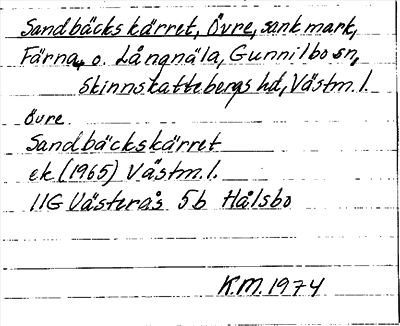 Sandbäckskärret, Övre, sank mark,
Färna o. Långnäla, Gunnilbo sn,
Skinnskattebergs hd, Västm.l.
Övre
Sandbäckskärret
ek (1965) Västm.l.
11G Västerås 5b Hålsbo
K.M. 1974